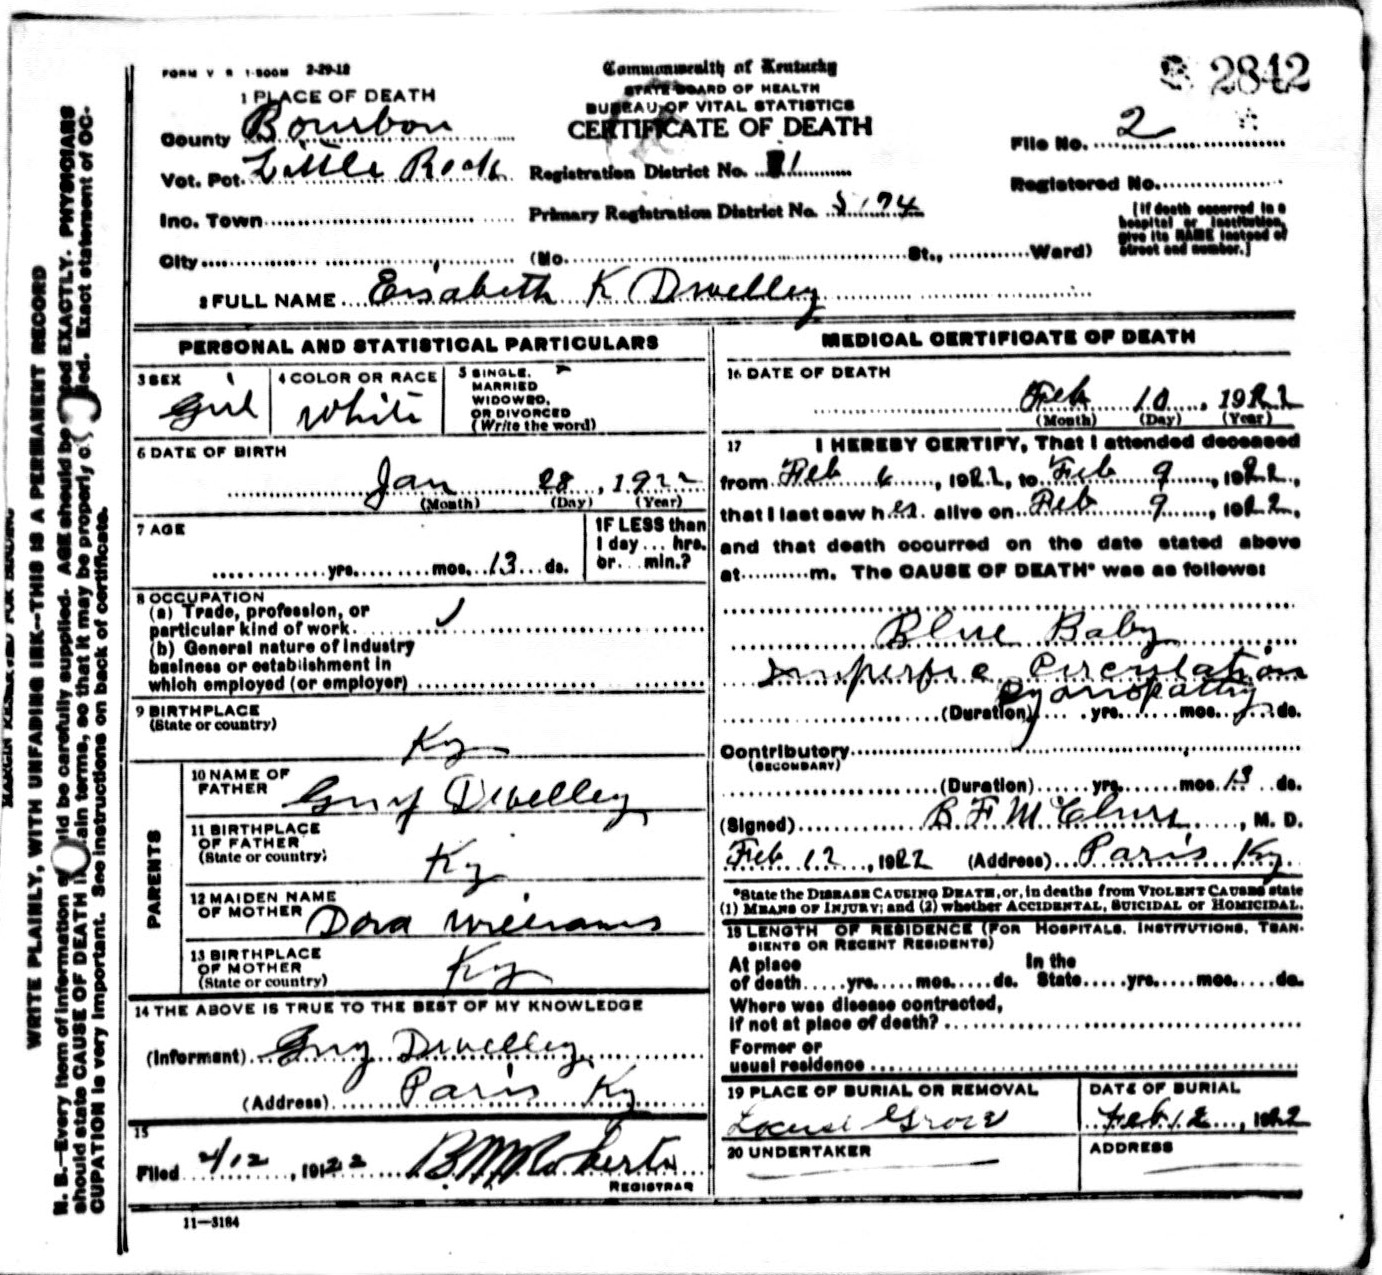 FORM V S 1-500M 2-29-12
Commonwealth of Kentucky
STATE BOARD OF HEALTH
BUREAU OF VITAL STATISTICS
CERTIFICATE OF DEATH
2842
1 PLACE OF DEATH
County Bourbon
Vot. Pct. Little Rock
Inc. Town
City (No. St., Ward)
Registration District No. 81
Primary Registration District No. 5194
File No. 2
Registered No.
[If death occurred in a
hospital or institution,
give its NAME instead of
street and number.]
2 FULL NAME Elsabeth K Dwelley
PERSONAL AND STATISTICAL PARTICULARS
3 SEX
Girl
4 COLOR OR RACE
White
5 SINGLE,
MARRIED
WIDOWED,
OR DIVORCED
(Write the word)
6 DATE OF BIRTH
Jan 28, 1922
(Month) (Day) (Year)
7 AGE
yrs. mos. 13 ds.
IF LESS than
1 day ... hrs.
or ... min.?
8 OCCUPATION
(a) Trade, profession, or
particular kind of work
(b) General nature of Industry
business or establishment in
which employed (or employer)
9 BIRTHPLACE
(State or country)
Ky
PARENTS
10 NAME OF
FATHER Guy Dwelley
11 BIRTHPLACE
OF FATHER
(State or country)
Ky
12 MAIDEN NAME
OF MOTHER Dora Williams
13 BIRTHPLACE
OF MOTHER
(State or country)
Ky
14 THE ABOVE IS TRUE TO THE BEST OF MY KNOWLEDGE
(Informant) Guy Dwelley
(Address) Paris Ky
15
Filed 2/12, 1922 B M Roberts
REGISTRAR
11—3184
MEDICAL CERTIFICATE OF DEATH
16 DATE OF DEATH
Feb 10, 1922
(Month) (Day) (Year)
17 I HEREBY CERTIFY, That I attended deceased
from Feb 6, 1922, to Feb 9, 1922,
that I last saw her alive on Feb 9, 1922,
and that death occurred on the date stated above
at m. The CAUSE OF DEATH* was as follows:
Blue Baby
Imperfic Circulation
Cyanopathy
(Duration) yrs. mos. ds.
Contributory
(SECONDARY)
(Duration) yrs. mos. 13 ds.
(Signed) B F M Clure, M. D.
Feb 12, 1922 (Address) Paris Ky.
*State the DISEASE CAUSING DEATH, or, in deaths from VIOLENT CAUSES state
(1) MEANS OF INJURY; and (2) whether ACCIDENTAL, SUICIDAL or HOMICIDAL.
18 LENGTH OF RESIDENCE (FOR HOSPITALS, INSTITUTIONS, TRAN-
SIENTS OR RECENT RESIDENTS)
At place In the
of death yrs. mos. ds. State yrs. mos. ds.
Where was disease contracted,
if not at place of death?
Former or
usual residence
19 PLACE OF BURIAL OR REMOVAL
Locust Grove
DATE OF BURIAL
Feb 12, 1922
20 UNDERTAKER
ADDRESS
MARGIN RESERVED FOR BINDING
WRITE PLAINLY, WITH UNFADING INK--THIS IS A PERMANENT RECORD
N. B.—Every item of information should be carefully supplied. AGE should be stated EXACTLY. PHYSICIANS
should state CAUSE OF DEATH in plain terms, so that it may be properly classified. Exact statement of OC-
CUPATION is very important. See instructions on back of certificate.